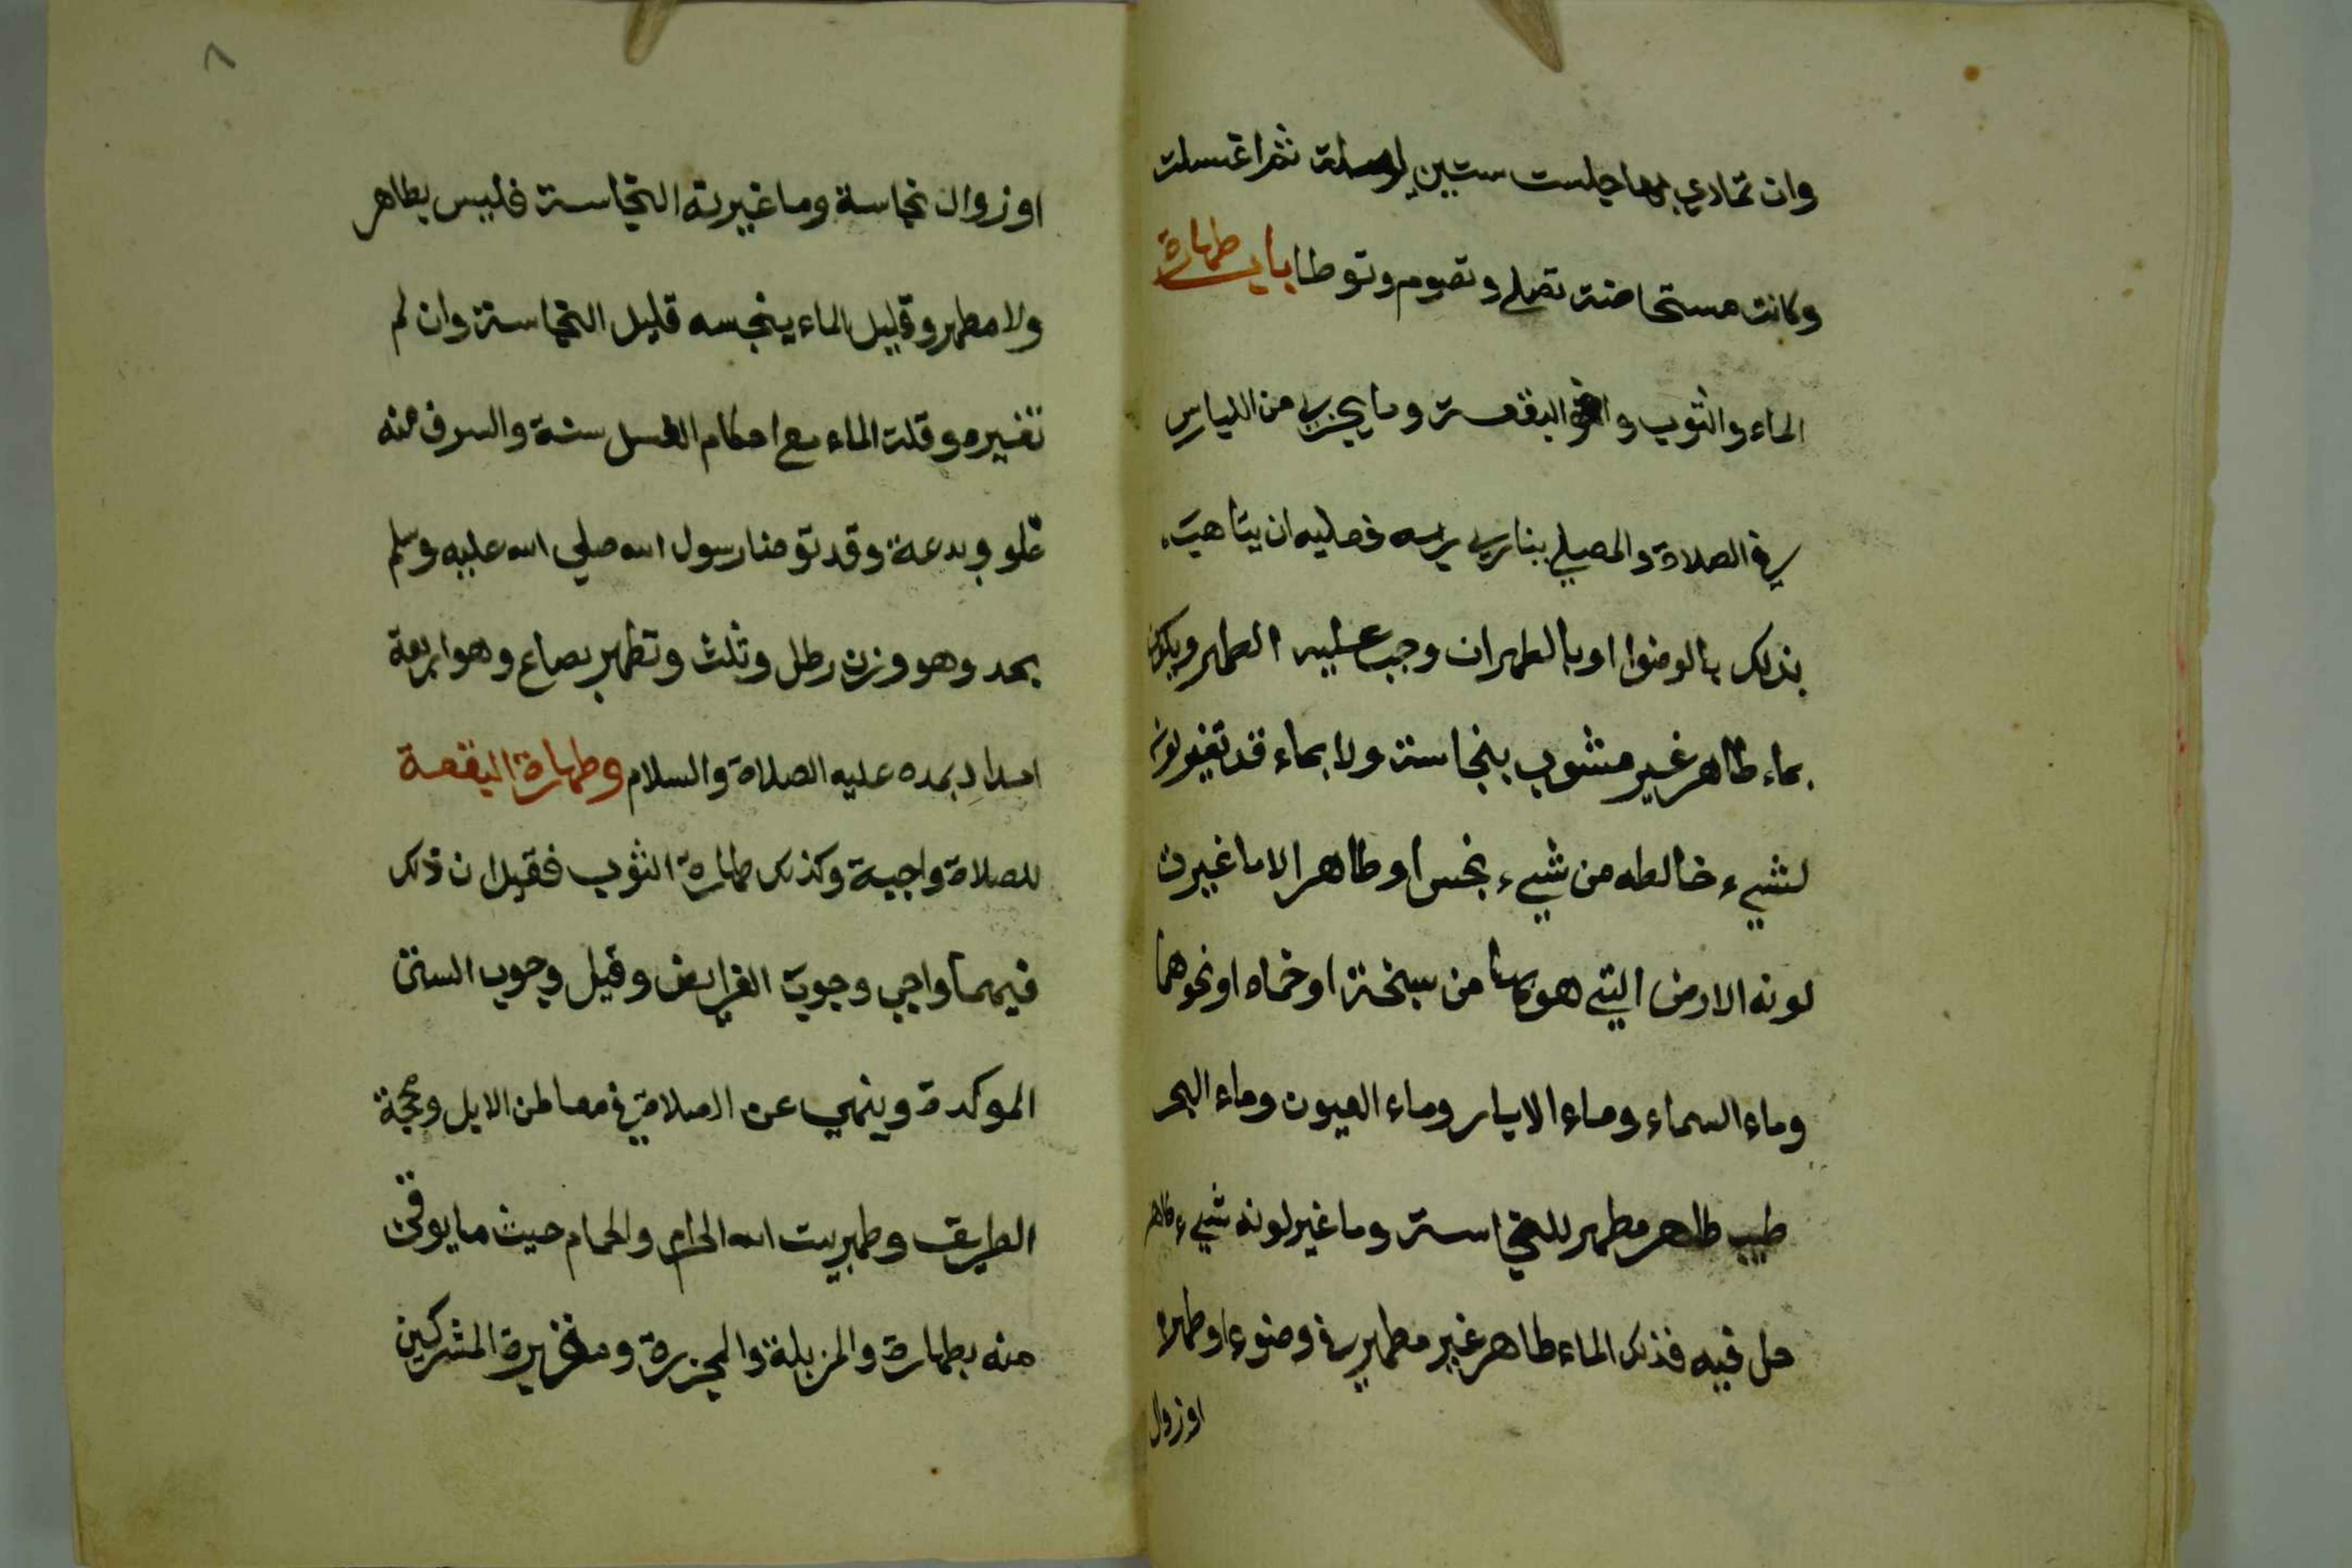 وان تمادي بها جلست ستين ليلة ثم اغتسلت
وكانت مستحاضة تصلي وتصوم وتوطا باب طهارة
الماء والثوب والبقعة وما يجزي من اللباس
في الصلاة والمصلي يناجي ربه فعليه ان يتاهب
بذلك بالوضوا او بالطهران وجب عليه الطهر ويكون
بماء طاهر غير مشوب بنجاسة ولا بماء قد تغير لونه
لشيء خالطه من شيء نجس او طاهر الا ما غيرت
لونه الارض التي هو بها من سبخة او حماه او نحوهما
وماء السماء وماء الابيار وماء العيون وماء البحر
طيب طاهر مطهر للنجاسة وما غير لونه شيء طاهر
حل فيه فذلك الماء طاهر غير مطهر في وضوء او طهر
او زوال
٨
او زوال نجاسة وما غيرته النجاسة فليس بطاهر
ولا مطهر وقليل الماء ينجسه قليل النجاسة وان لم
تغيره وقلة الماء مع احكام الغسل سنة والسرف منه
غلو وبدعة وقد توضا رسول الله صلي الله عليه وسلم
بمد وهو وزن رطل وثلث وتطهر بصاع وهو اربعة
امداد بمده عليه الصلاة والسلام وطهارة البقعة
للصلاة واجبة وكذلك طهارة الثوب فقيل ان ذلك
فيهما واجب وجوب الفرايض وقيل وجوب السنن
الموكدة وينهي عن الصلاة في معاطن الابل ومحجة
الطريق وظهر بيت الله الحرام والحمام حيث ما يوقن
منه بطهارة والمزبلة والمجزرة ومقبرة المشركين